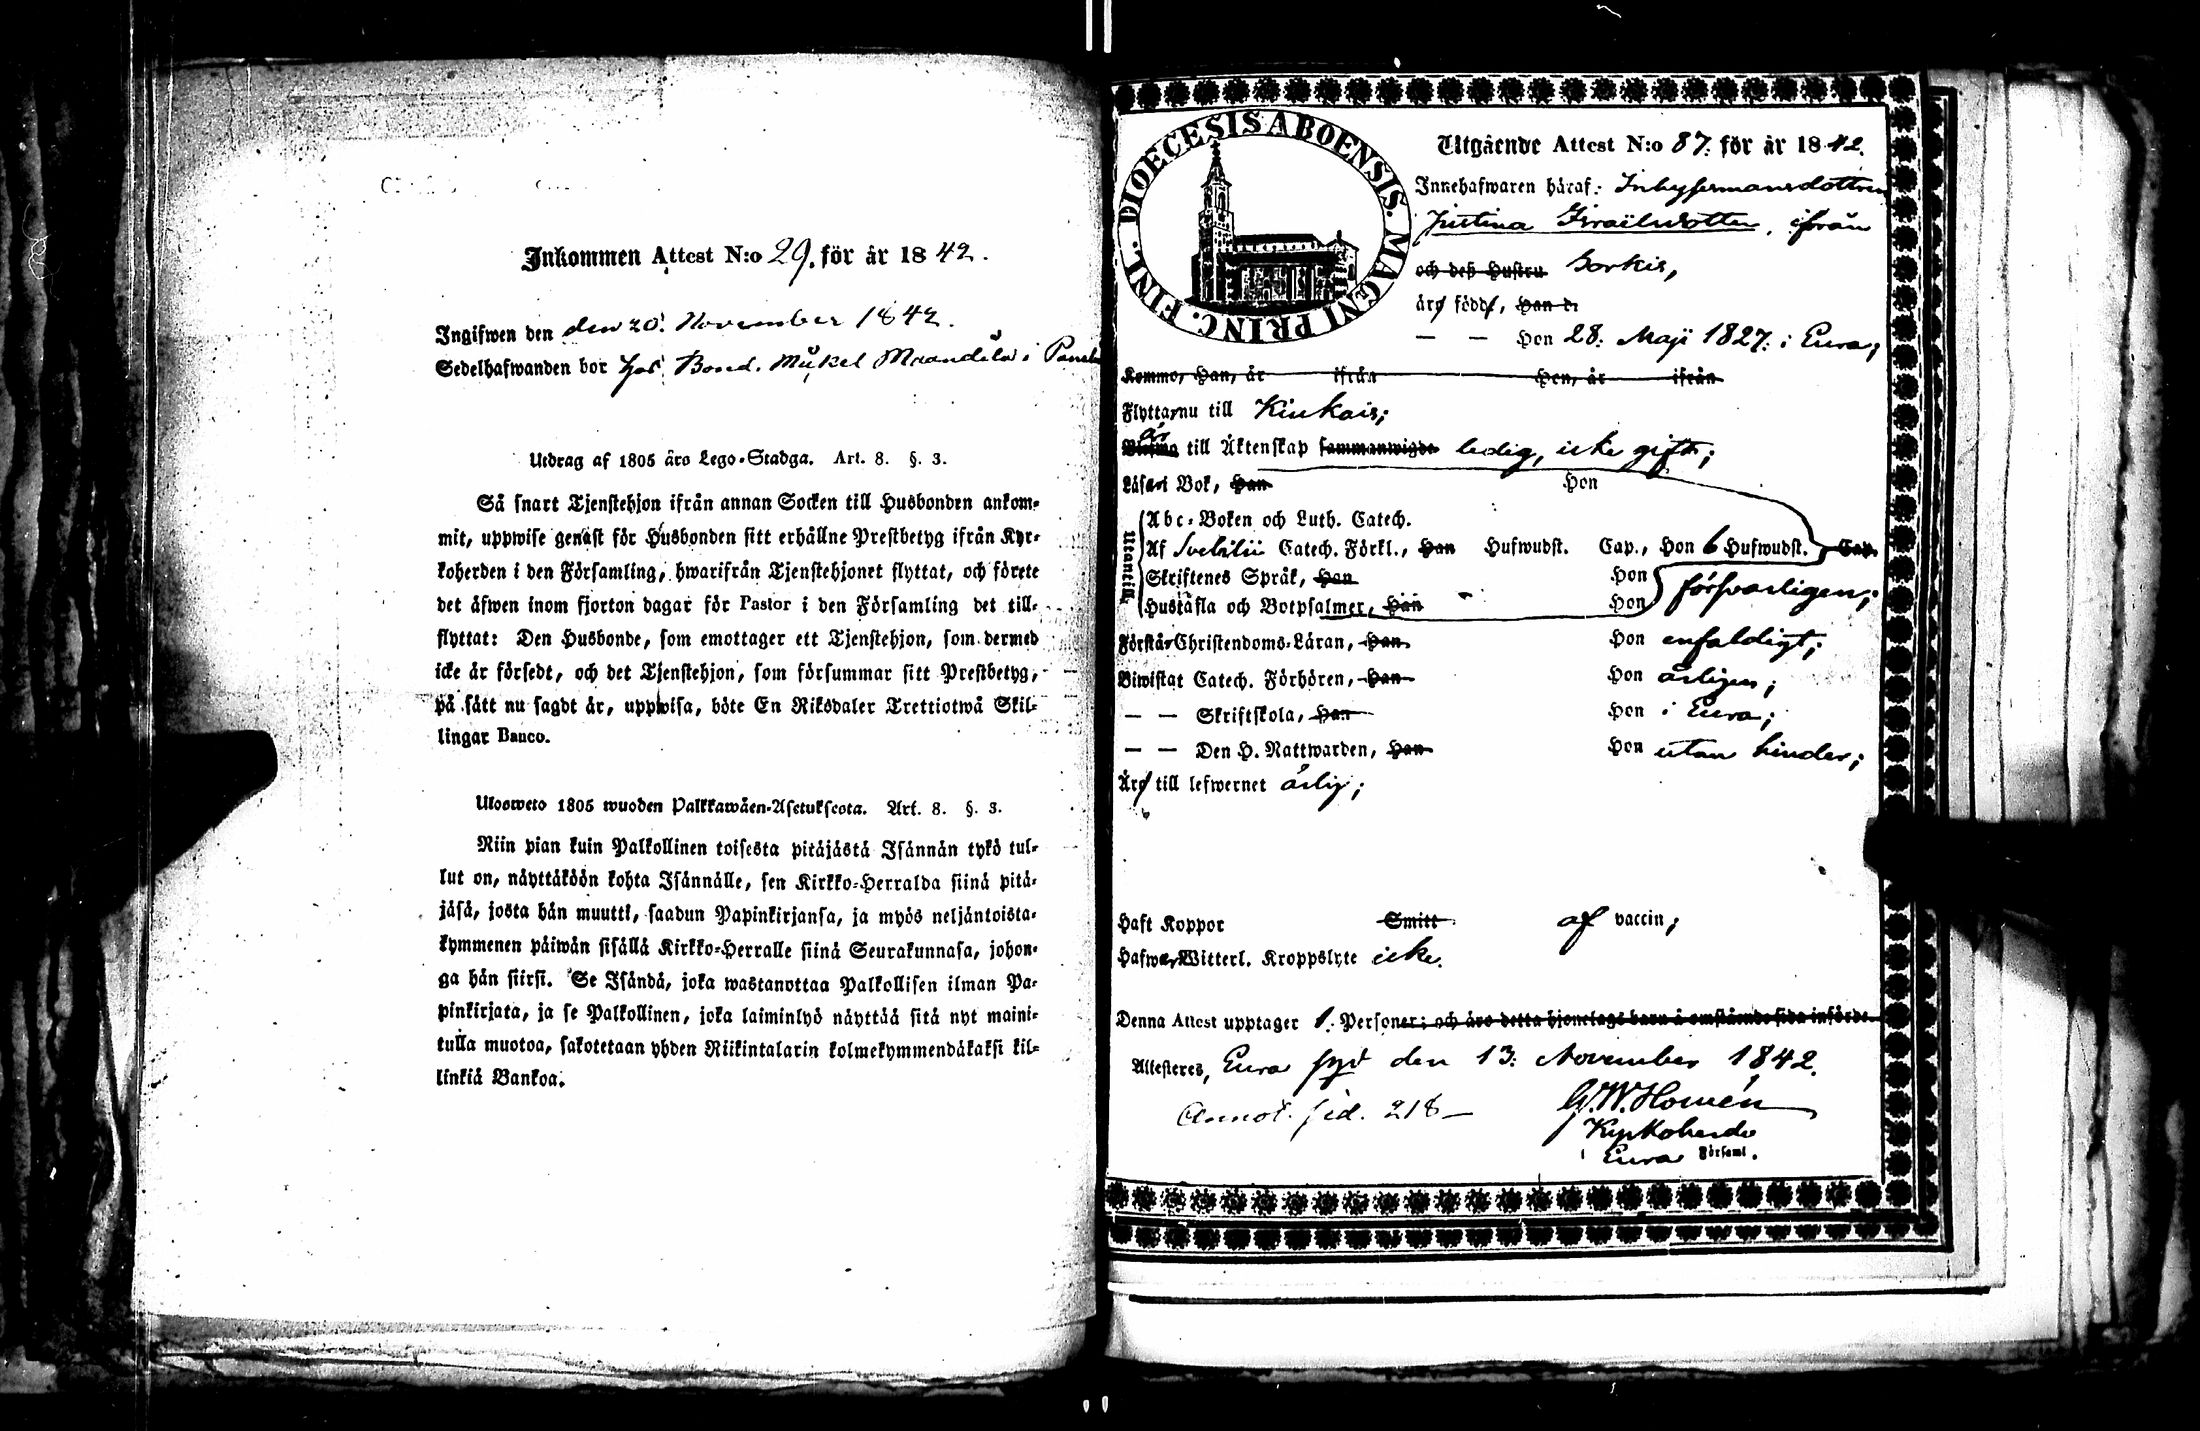 Inkommen Attest N:o 29. för år 1842.
Ingifwen den den 20. November 1842.
Sedelhafwanden bor hos Bond. Mickel Maandela i
Utdrag af 1805 års Lego-Stadga. Art. 8. §. 3.
Så snart Tjenstehjon ifrån annan Socken till Husbonden ankom-
mit, uppwise genast för Husbonden sitt erhållne Prestbetyg ifrån Kyr-
koherden i den Församling, hwarifrån Tjenstehjonet flyttat, och förete
det äfwen inom fjorton dagar för Pastor i den Församling det till-
flyttat: Den Husbonde, som emottager ett Tjenstehjon, som dermed
icke är försedt, och det Tjenstehjon, som försummar sitt Prestbetyg,
på sätt nu sagdt är, uppwisa, böte En Riksdaler Trettiotwå Skil-
lingar Banco.
Ulosweto 1805 wuoden Palkkawäen-Asetuksesta. Art. 8. §. 3.
Niin pian kuin Palkollinen toisesta pitäjästä Isännän tykö tul-
lut on, näyttäköön kohta Isännälle, sen Kirkko-Herralda siinä pitä-
jäsä, josta hän muutti, saadun Papinkirjansa, ja myös neljäntoista-
kymmenen päiwän sisällä Kirkko-Herralle siinä Seurakunnasa, johon-
ga hän siirsi. Se Isändä, joka wastanottaa Palkollisen ilman Pa-
pinkirjata, ja se Palkollinen, joka laiminlyö näyttää sitä nyt maini-
tulla muotoa, sakotetaan yhden Riikintalarin kolmekymmendäkaksi kil-
linkiä Bankoa.
DIOECESIS ABOENSIS. MAGNI PRINC. FINL.
Utgående Attest N:o 87. för år 1842.
Innehafwaren häraf: Inhysesmansdottren
Justina Israëlsdotter, ifrån
och deß Hustru Sorkis,
äro född, Han d.
— — Hon 28. Maji 1827. i Eura;
Kommo, Han, år ifrån Hon, år ifrån
Flytta nu till Kiukais;
är till Äktenskap sammanwigde ledig, icke gift;
Läsa i Bok, Han Hon
Utantill.
Abc-Boken och Luth. Catech.
Af Svebilii Catech. Förkl., Han Hufwudst. Cap., Hon 6 Hufwudst. Cap.
Skriftenes Språk, Han Hon försvarligen;
Hustafla och Botpsalmer, Han Hon
Förstår Christendoms-Läran, Han Hon enfaldigt;
Biwistat Catech. Förhören, Han Hon årligen;
— — Skriftskola, Han Hon i Eura;
— — Den H. Nattwarden, Han Hon utan hinder;
Äro till lefwernet ärlig;
Haft Koppor Smitt af vaccin;
Hafwa Witterl. Kroppslyte icke.
Denna Attest upptager 1. Personer; och äro detta hjonelags barn å omstående sida införde.
Attesteres, Eura pgd den 13. November 1842.
Annot. sid. 218 —
G.W. Homén
Kyrkoherde
i Eura Förfaml.